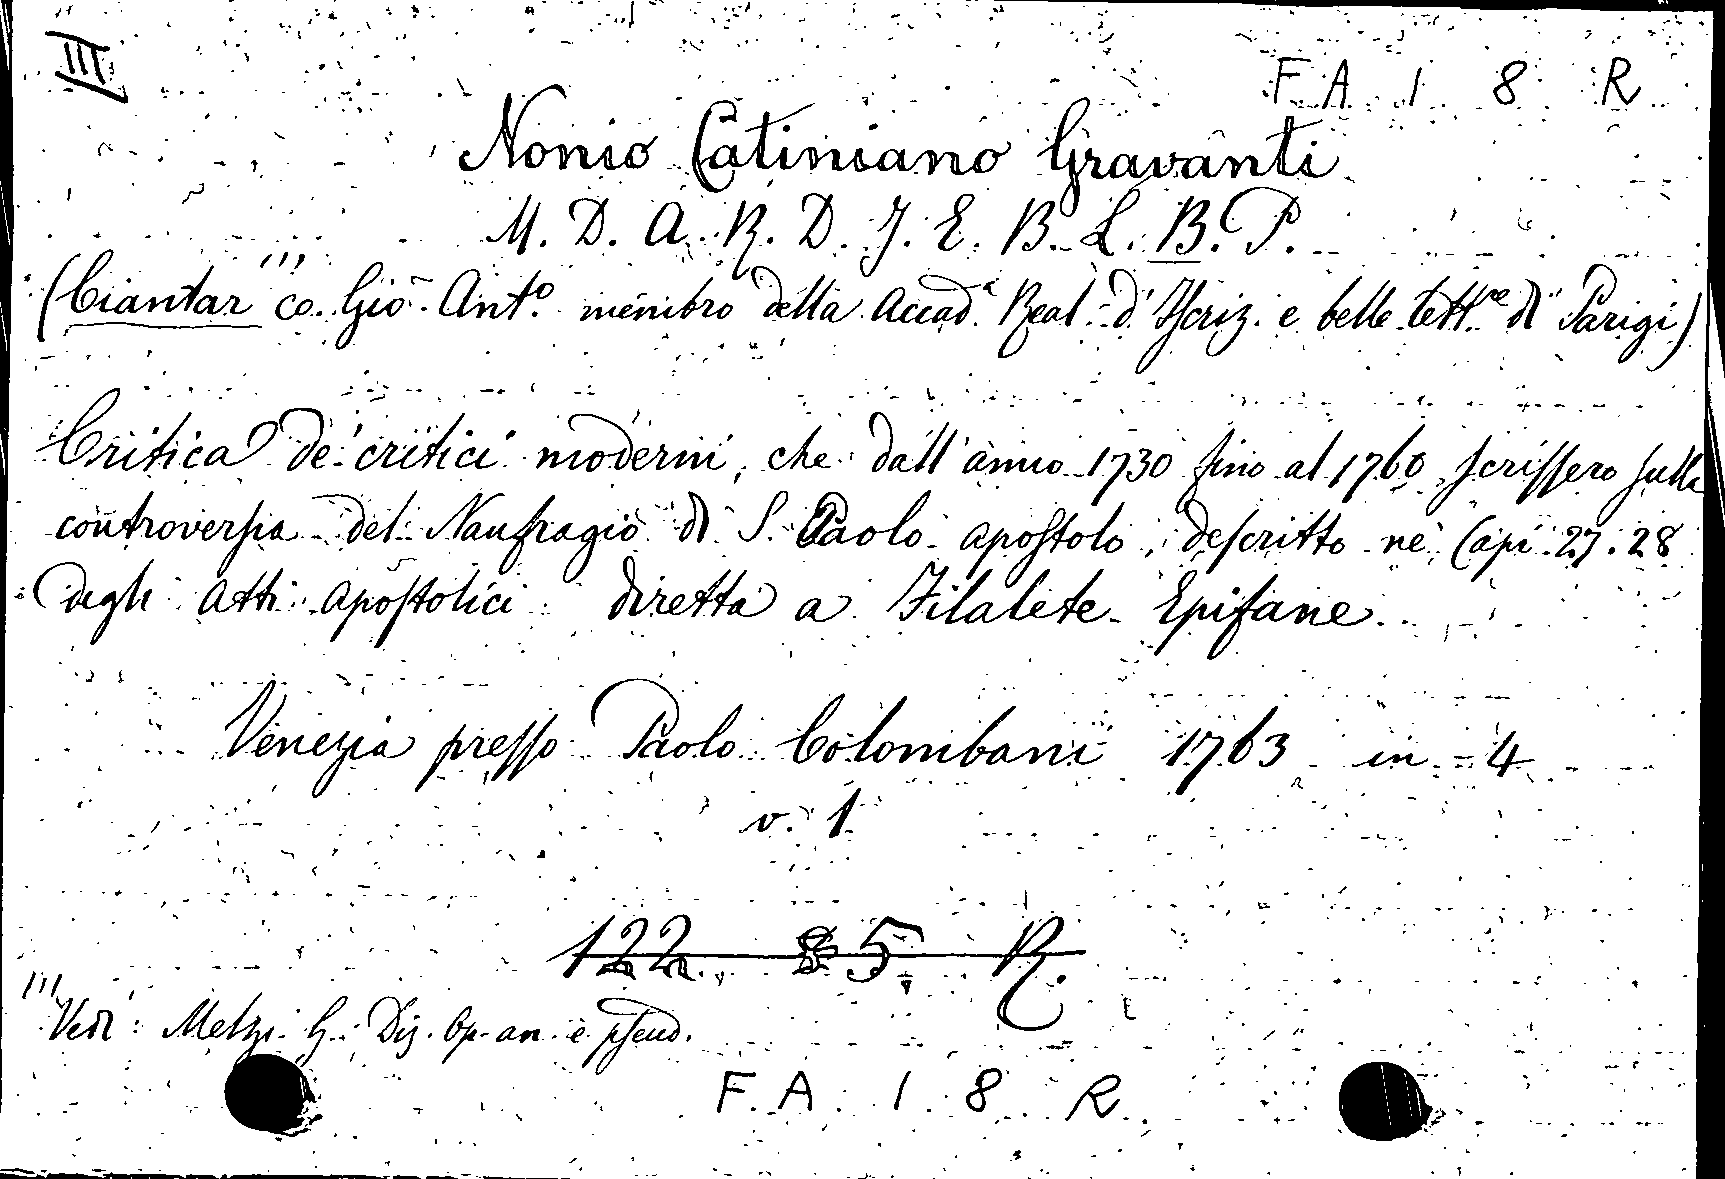 III
F A 1 8 R
Nonio Catiniano Gravanti
M. D. A. R. D. J. E. B. L. B. P.
(Ciantar (1) co. Gio. Ant.º membro della Accad.ª Real. d'Iscriz. e belle lett.re di Parigi)
Critica de' critici moderni, che dall'anno 1730 fino al 1760 scrissero sulla
controversia del Naufragio di S. Paolo apostolo, descritto ne' Capi 27. 28
degli Atti apostolici diretta a Filalete Epifane.
Venezia presso Paolo Colombani 1763 in 4
v. 1
122. 85. R.
(1) Vedi: Melzi G. Diz. Op. an. e pseud.
F. A. 1. 8. R.